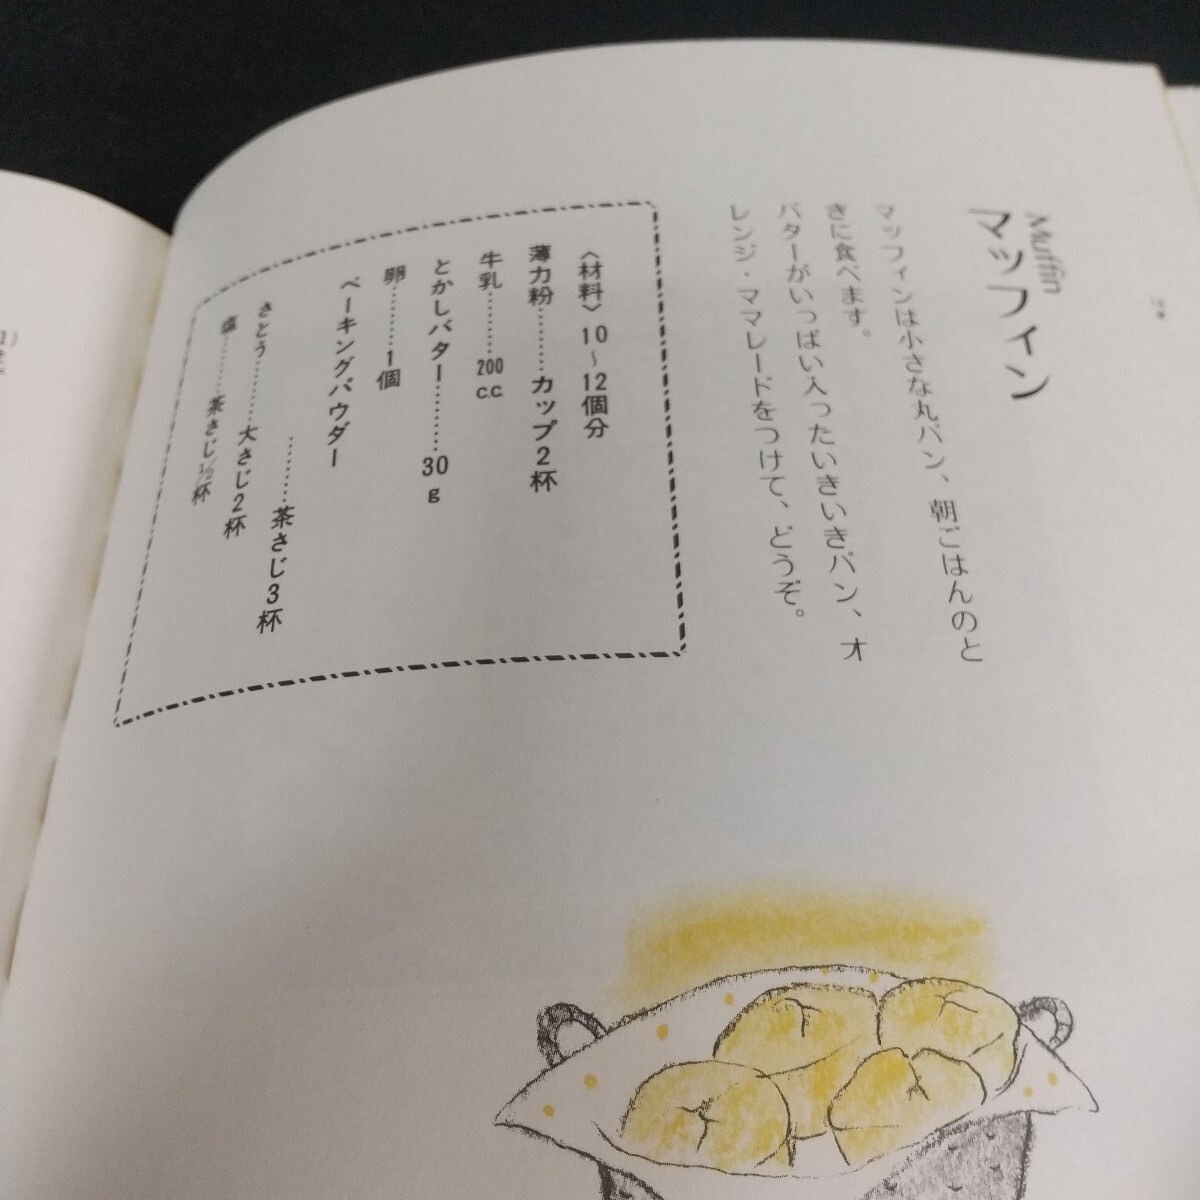 Muffin
マッフィン
マッフィンは小さな丸パン、朝ごはんのと
きに食べます。
バターがいっぱい入ったいきいきパン、オ
レンジ・ママレードをつけて、どうぞ。
〈材料〉10～12個分
薄力粉………カップ2杯
牛乳………200c.c.
とかしバター………30g
卵………1個
ベーキングパウダー
………茶さじ3杯
さとう………大さじ2杯
塩………茶さじ½杯